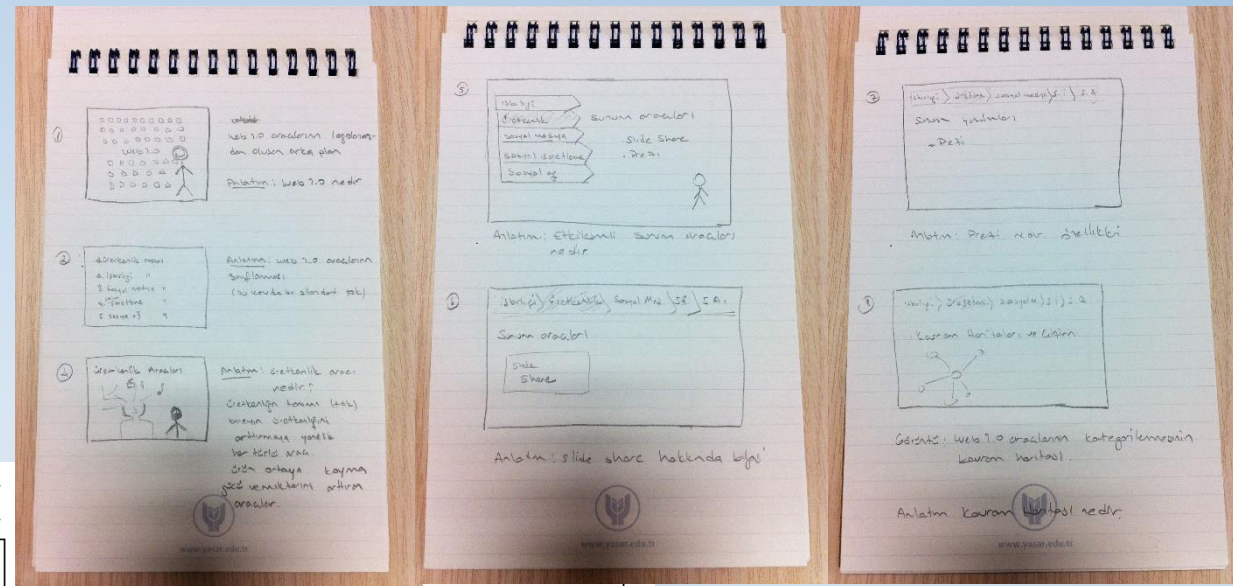 1
web 2.0 araçlarının logoların-
dan oluşan arka plan
WEB 2.0
Anlatım: Web 2.0 nedir
2
1. üretkenlik
2. işbirliği "
3. Sosyal medya "
4. işaretleme "
5. sosyal ağ "
Anlatım: web 2.0 araçlarının
sınıflanması
(bu konuda bir standart yok)
4
üretkenlik Araçları
Anlatım: üretkenlik aracı
nedir?
üretkenliğin tanımı (tdk)
bireyin üretkenliğini
arttırmaya yönelik
her türlü araç.
ürün ortaya koyma
gücü ve miktarını arttıran
araçlar.
www.yasar.edu.tr
5
işbirliği
üretkenlik
sosyal medya
sosyal işaretleme
Sosyal ağ
Sunum araçları
Slide Share
. Prezi
Anlatım: Etkileşimli sunum araçları
nedir
6
işbirliği üretkenlik Sosyal Med. S.İ. S.A.
Sunum araçları
Slide
Share
Anlatım: slide share hakkında bilgi
www.yasar.edu.tr
7
işbirliği üretkenlik sosyal medya S.İ S.A
Sunum
- Prezi
Anlatım: Prezi özellikleri
8
işbirliği üretkenlik sosyal m S.İ S.A
. Kavram Haritaları ve Çizim
Görüntü: Web 2.0 araçlarının kategorilenmesinin
kavram haritası.
Anlatım Kavram haritası nedir.
www.yasar.edu.tr